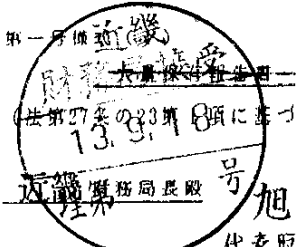 第一号様式
近畿
財務
受
大量保有報告書
(法第27条の23第1項に基づ
13.9.18
第 号
近畿財務局長殿
旭
代表取